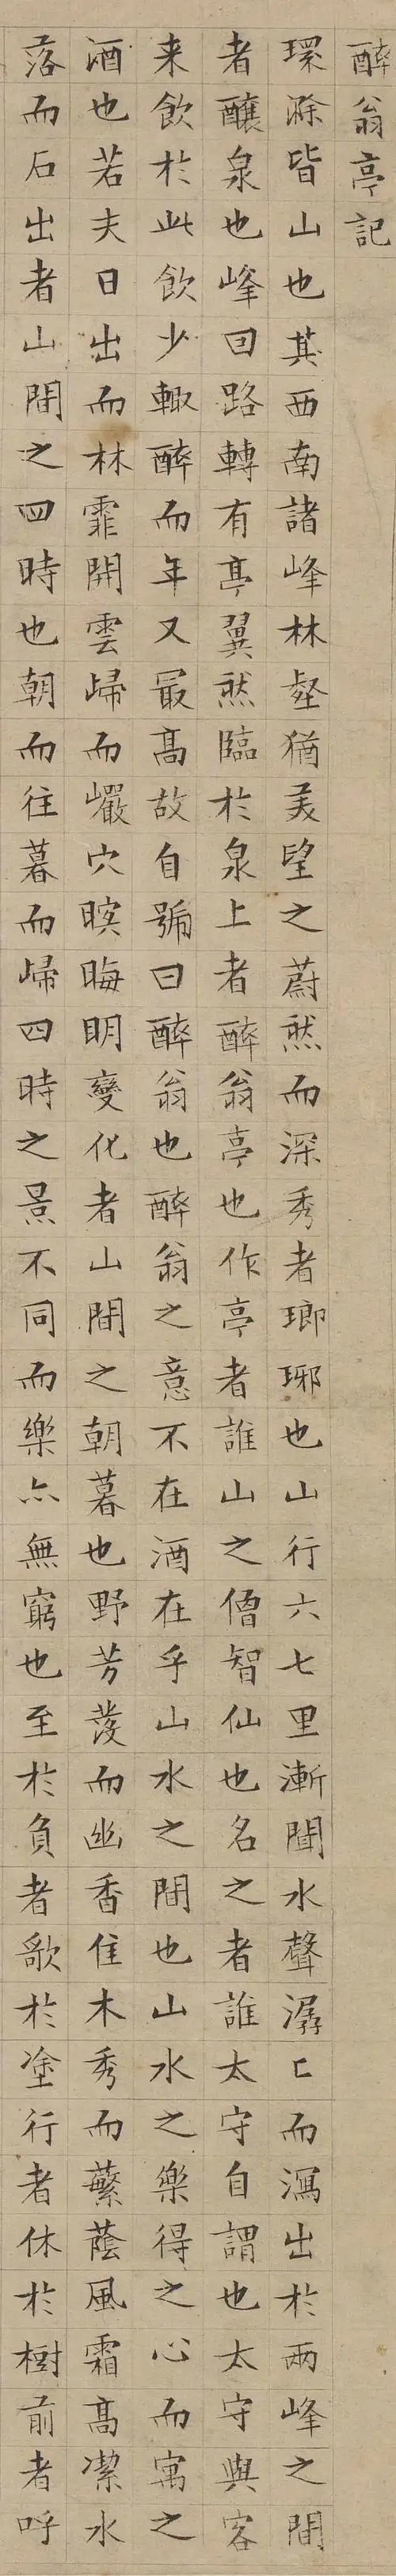 醉翁亭記
環滁皆山也其西南諸峰林壑猶美望之蔚然而深秀者瑯琊也山行六七里漸聞水聲潺〻而瀉出於兩峰之間
者釀泉也峰回路轉有亭翼然臨於泉上者醉翁亭也作亭者誰山之僧智仙也名之者誰太守自謂也太守與客
来飲於此飲少輒醉而年又最高故自號曰醉翁也醉翁之意不在酒在乎山水之間也山水之樂得之心而寓之
酒也若夫日出而林霏開雲歸而巖穴暝晦明變化者山間之朝暮也野芳發而幽香佳木秀而繁蔭風霜高潔水
落而石出者山間之四時也朝而往暮而歸四時之景不同而樂亦無窮也至於負者歌於塗行者休於樹前者呼